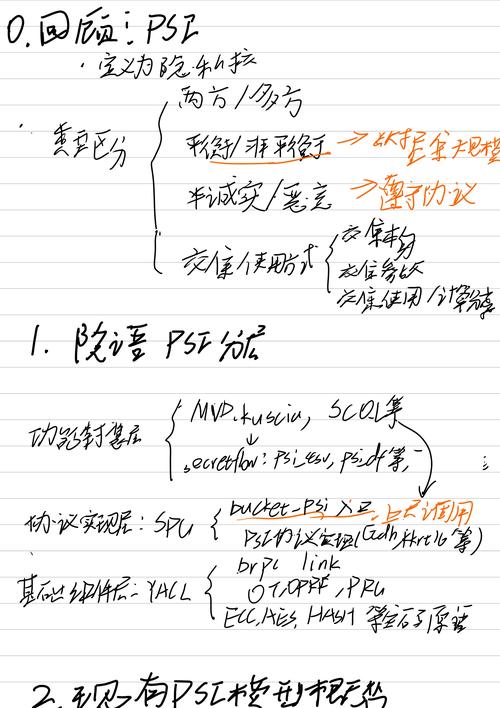 0. 回顾: PSI
· 定义为隐私
两方/多方
重要区分
平衡/非平衡 → 数据集大规模
半诚实/恶意 → 遵守协议
交集使用方式
交集本身
交集参数
交集使用/计算
1. 隐语 PSI 分层
功能封装层
MVP, kuscia, SCQL等
secretflow: psi_csv, psi_df等,
协议实现层: SPU
bucket-psi 入口 调用
PSI协议实现(Ecdh, kkrt16等)
基础组件层: YACL
brpc link
OT, OPRF, PRG
ECC, AES, HASH 等密码学原语
2. 现有PSI模型